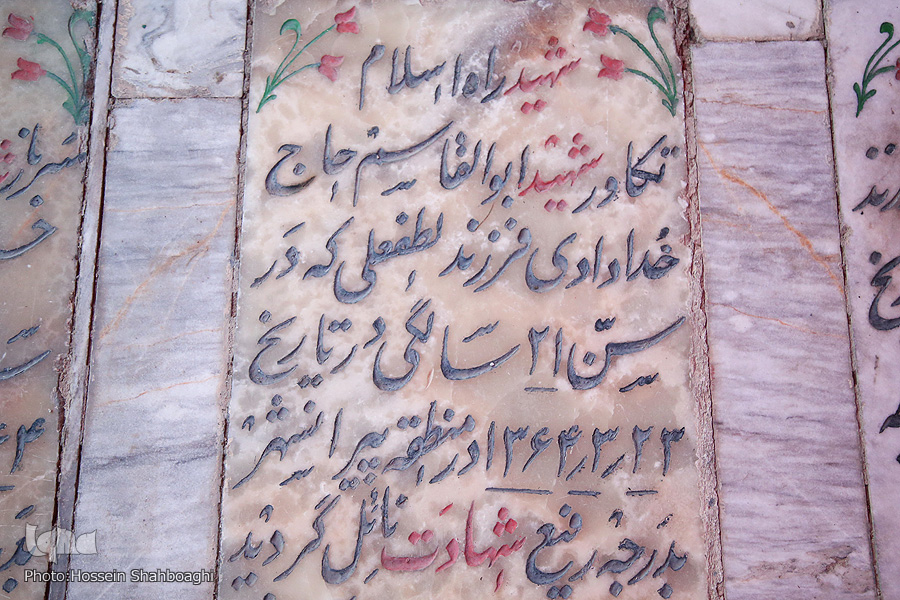 شهید راه اسلام
تکاور شهید ابوالقاسم حاج
خدادادی فرزند لطفعلی که در
سن ۲۱ سالگی در تاریخ
۱۳۶۴٫۳٫۲۳ در منطقه پیرانشهر
بدرجه رفیع شهادت نائل گردید
iqna
Photo:Hossein Shahboaghi